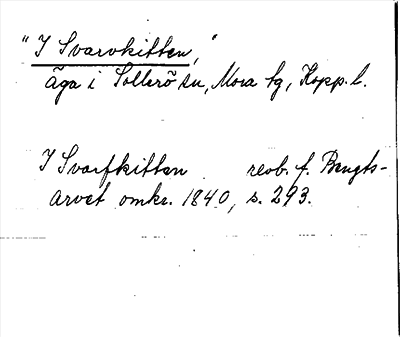 "I Svarvkitten,"
äga i Sollerö sn, Mora tg, Kopp. l.
I Svarfkitten reob. f. Bengts-
arvet omkr. 1840, s. 293.